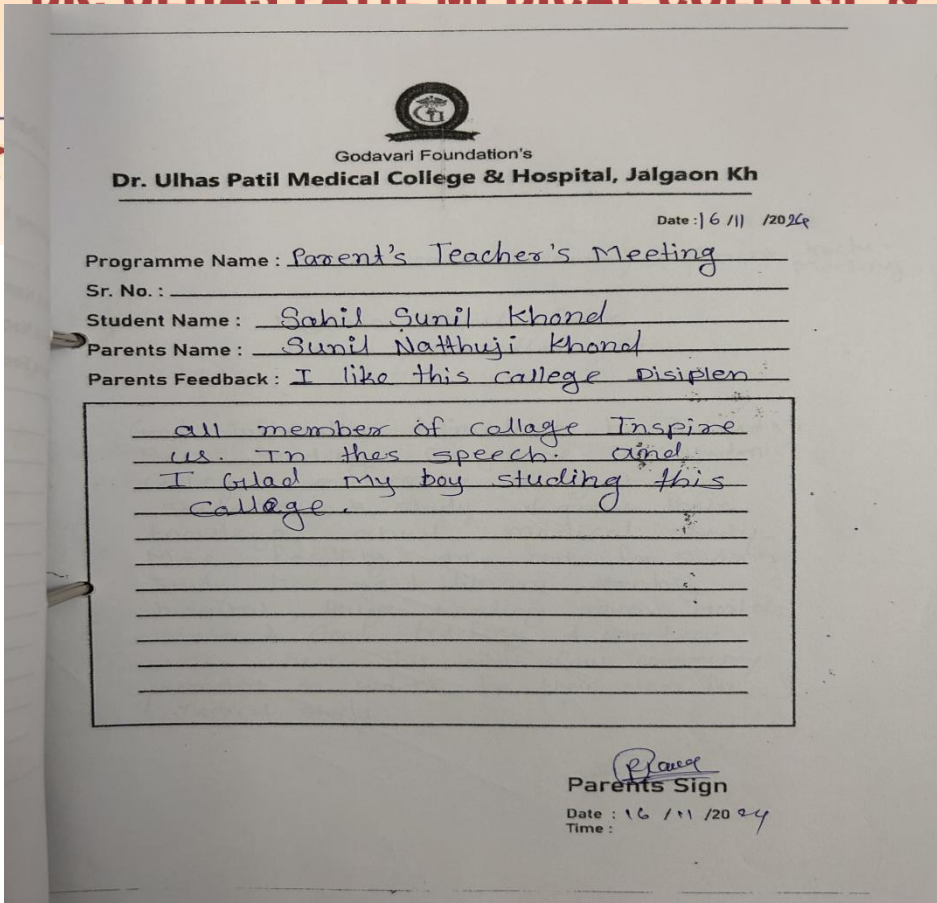 DR. ULHAS PATIL MEDICAL COLLEGE &
Godavari Foundation's
Dr. Ulhas Patil Medical College & Hospital, Jalgaon Kh
Date : 16 /11 /2024
Programme Name : Parent's Teacher's Meeting
Sr. No. :
Student Name : Sahil Sunil Khond
Parents Name : Sunil Natthuji Khond
Parents Feedback : I like this college Disiplen
all member of collage Inspire
us. In thes speech. and
I Glad my boy studing this
Collage.
Parents Sign
Date : 16 /11 /2024
Time :